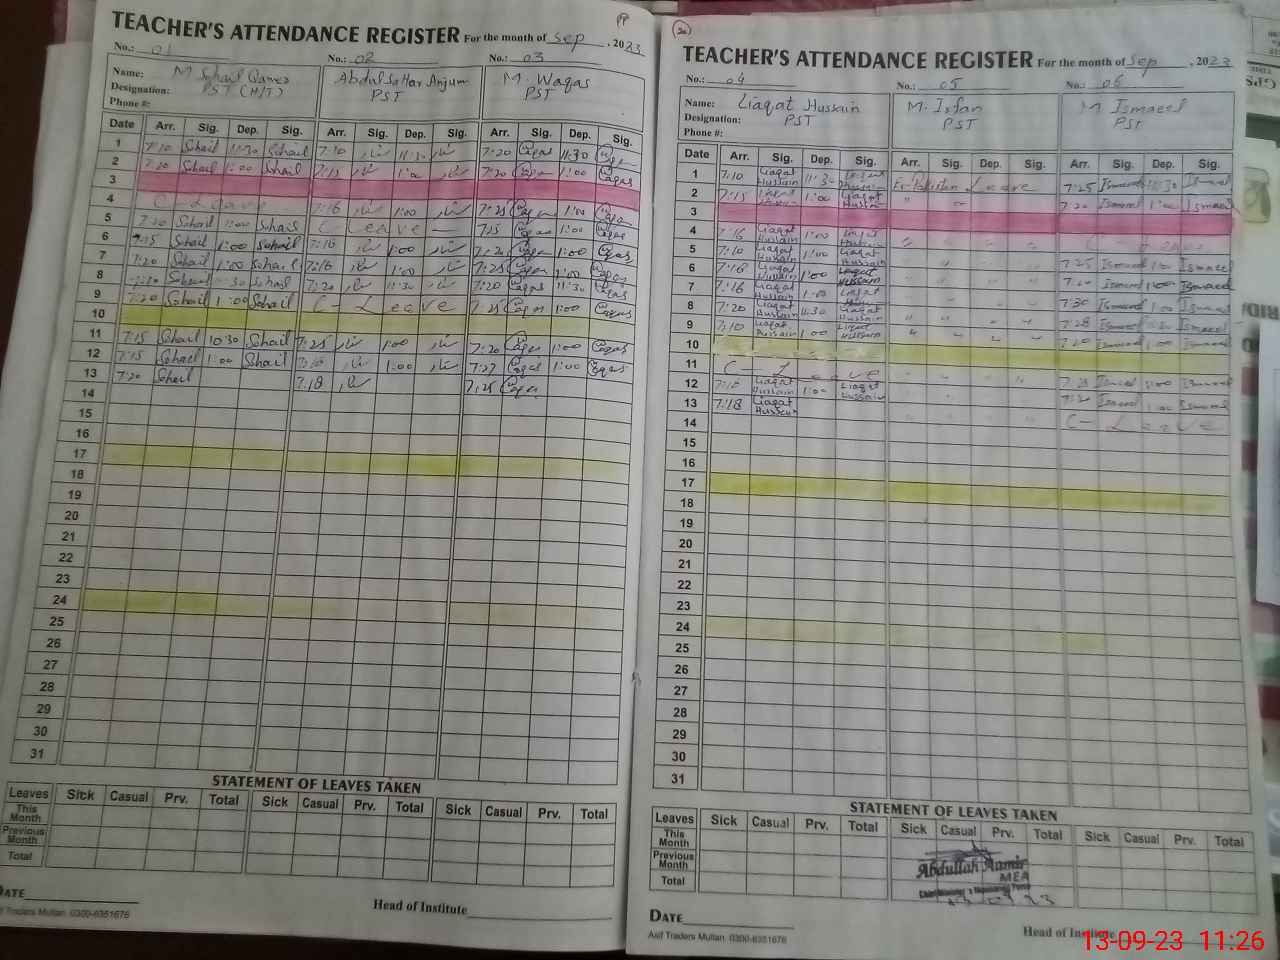 PP
TEACHER'S ATTENDANCE REGISTER For the month of Sep, 2023
No.: 01 No.: 02 No.: 03
Name: M Sohail Abdul Sattar Anjum M. Waqas
Designation: PST (H/T) PST PST
Phone #:
Date Arr. Sig. Dep. Sig. Arr. Sig. Dep. Sig. Arr. Sig. Dep. Sig.
1 7:10 Sohail 11:30 Sohail 7:10 11:30 7:20 Waqas 11:30
2 7:20 Sohail 1:00 Sohail 7:15 1:00 7:20 1:00 Waqas
3
4 C - Leave 7:16 1:00 7:25 1:00
5 7:20 Sohail 1:00 Sohail C - Leave 7:15 1:00
6 7:15 Sohail 1:00 Sohail 7:16 1:00 1:00
7 7:20 Sohail 1:00 Sohail 7:16 1:00 7:25 1:00
8 Sohail 11:30 Sohail 7:20 11:30 7:20 Waqas 11:30
9 7:20 Sohail 1:00 Sohail C - Leave 7:25 1:00 Waqas
10
11 7:15 Sohail 10:30 Sohail 7:25 1:00 7:20 Waqas 1:00 Waqas
12 7:15 Sohail 1:00 Sohail 7:16 1:00 7:27 Waqas 1:00 Waqas
13 7:20 Sohail 7:18 7:25 Waqas
14
15
16
17
18
19
20
21
22
23
24
25
26
27
28
29
30
31
STATEMENT OF LEAVES TAKEN
Leaves Sick Casual Prv. Total Sick Casual Prv. Total Sick Casual Prv. Total
This Month
Previous Month
Total
DATE
Head of Institute
Asif Traders Multan. 0300-6351676
TEACHER'S ATTENDANCE REGISTER For the month of Sep, 2023
No.: 04 No.: 05 No.: 06
Name: Liaqat Hussain M. Irfan M. Ismaeel
Designation: PST PST PST
Phone #:
Date Arr. Sig. Dep. Sig. Arr. Sig. Dep. Sig. Arr. Sig. Dep. Sig.
1 7:10 Liaqat Hussain 11:30 Liaqat Hussain Ex-Pakistan Leave 7:25 Ismaeel 11:30 Ismaeel
2 7:15 Liaqat Hussain 1:00 Liaqat Hussain " " 7:20 Ismaeel 1:00 Ismaeel
3
4 7:16 Liaqat Hussain 1:00 Liaqat Hussain " " " " C - Leave
5 7:10 Liaqat Hussain 1:00 Liaqat Hussain " " " " 7:25 Ismaeel 1:00 Ismaeel
6 7:16 Liaqat Hussain 1:00 Liaqat Hussain " " " " 7:20 Ismaeel 1:00 Ismaeel
7 7:16 Liaqat Hussain 1:00 Liaqat Hussain " " " " 7:30 Ismaeel 1:00 Ismaeel
8 7:20 Liaqat Hussain 11:30 Liaqat Hussain " " " " 7:28 Ismaeel Ismaeel
9 7:10 Liaqat Hussain 1:00 Liaqat Hussain " " " " Ismaeel 1:00 Ismaeel
10
11 C - Leave " " " " Ismaeel 1:00 Ismaeel
12 7:16 Liaqat Hussain 1:00 Liaqat Hussain " " " " Ismaeel 1:00 Ismaeel
13 7:18 Liaqat Hussain " " " " C - Leave
14
15
16
17
18
19
20
21
22
23
24
25
26
27
28
29
30
31
STATEMENT OF LEAVES TAKEN
Leaves Sick Casual Prv. Total Sick Casual Prv. Total Sick Casual Prv. Total
This Month
Previous Month
Total
Abdullah Aamir
MEA
DATE
Head of Institute
Asif Traders Multan. 0300-6351676
13-09-23 11:26